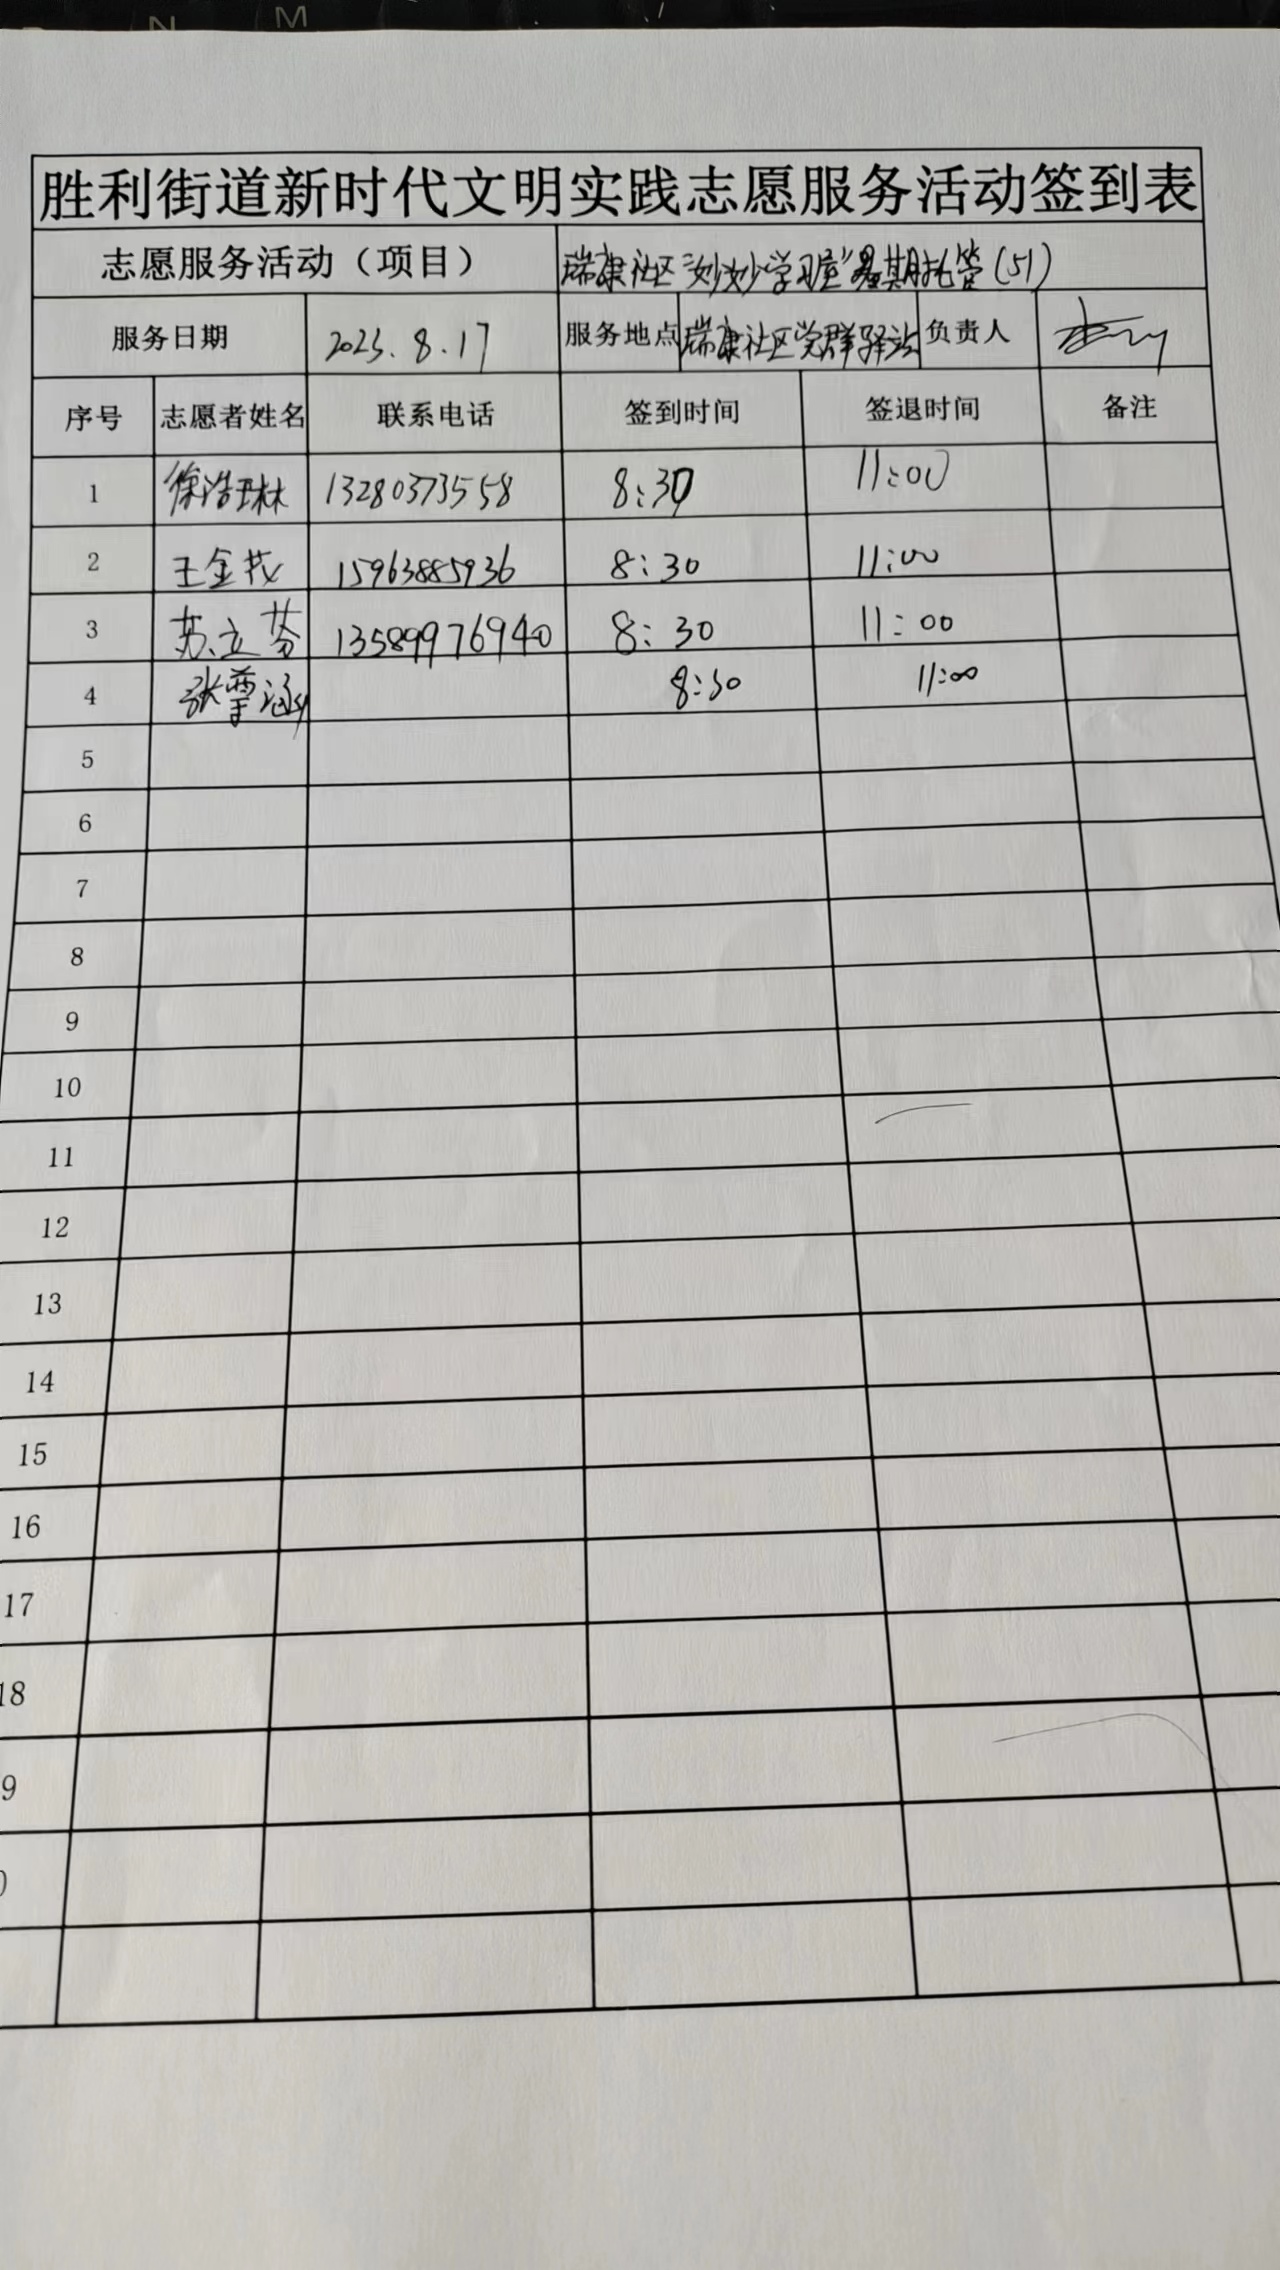 N M
胜利街道新时代文明实践志愿服务活动签到表
志愿服务活动（项目） 瑞康社区“妙妙学习室”暑期托管(51)
服务日期 2023.8.17 服务地点 瑞康社区党群驿站 负责人
序号 志愿者姓名 联系电话 签到时间 签退时间 备注
1 徐浩琳 13280373558 8:30 11:00
2 王金 15963885936 8:30 11:00
3 苏立芬 13589976940 8:30 11:00
4 张 涵 8:30 11:00
5
6
7
8
9
10
11
12
13
14
15
16
17
18
9
0